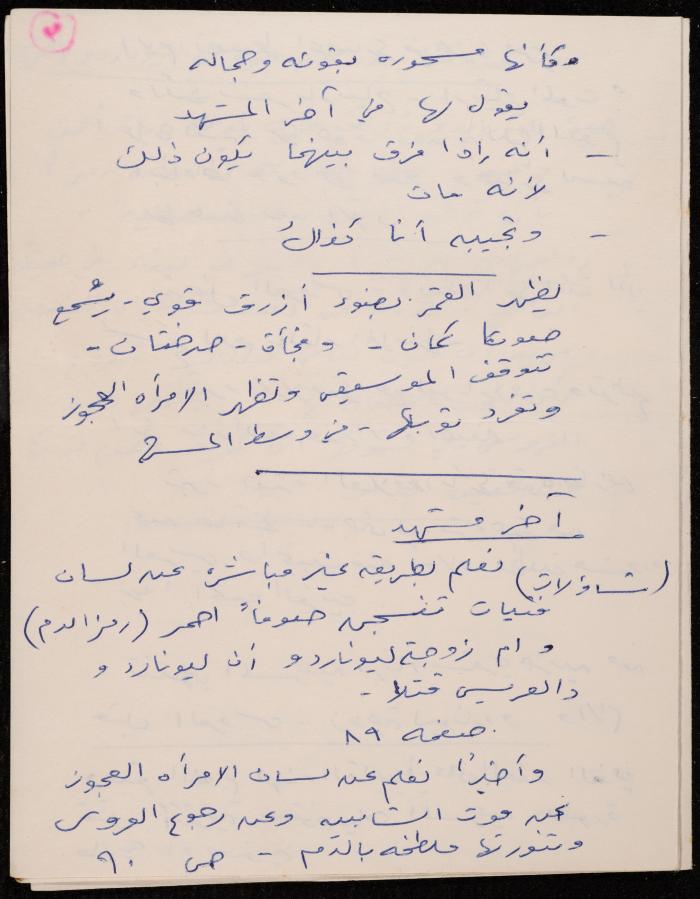 وكأنها مسحوره بقوته وجماله
يقول لها في آخر المشهد
- أنه إذا فرق بينهما يكون ذلك
لأنه مات
- وتجيبه أنا كذلك
يظهر القمر بضوء أزرق قوي - يُسمع
صوت كمان - وفجأة - صرختان -
تتوقف الموسيقى وتظهر الامرأه العجوز
وتفرد ثوبها - في وسط المسرح
آخر مشهد
(تساؤلات) نعلم بطريقه غير مباشره عن لسان
فتيات تنسجن صوفاً احمر (رمز الدم)
و ام زوجة ليوناردو أن ليوناردو و
والعريس قتلا -
صفحه ٨٩
وأخيرًا نعلم عن لسان الامرأه العجوز
عن موت الشابين وعن رجوع العروس
وتنورتها ملطخه بالدم - ص ٩٠